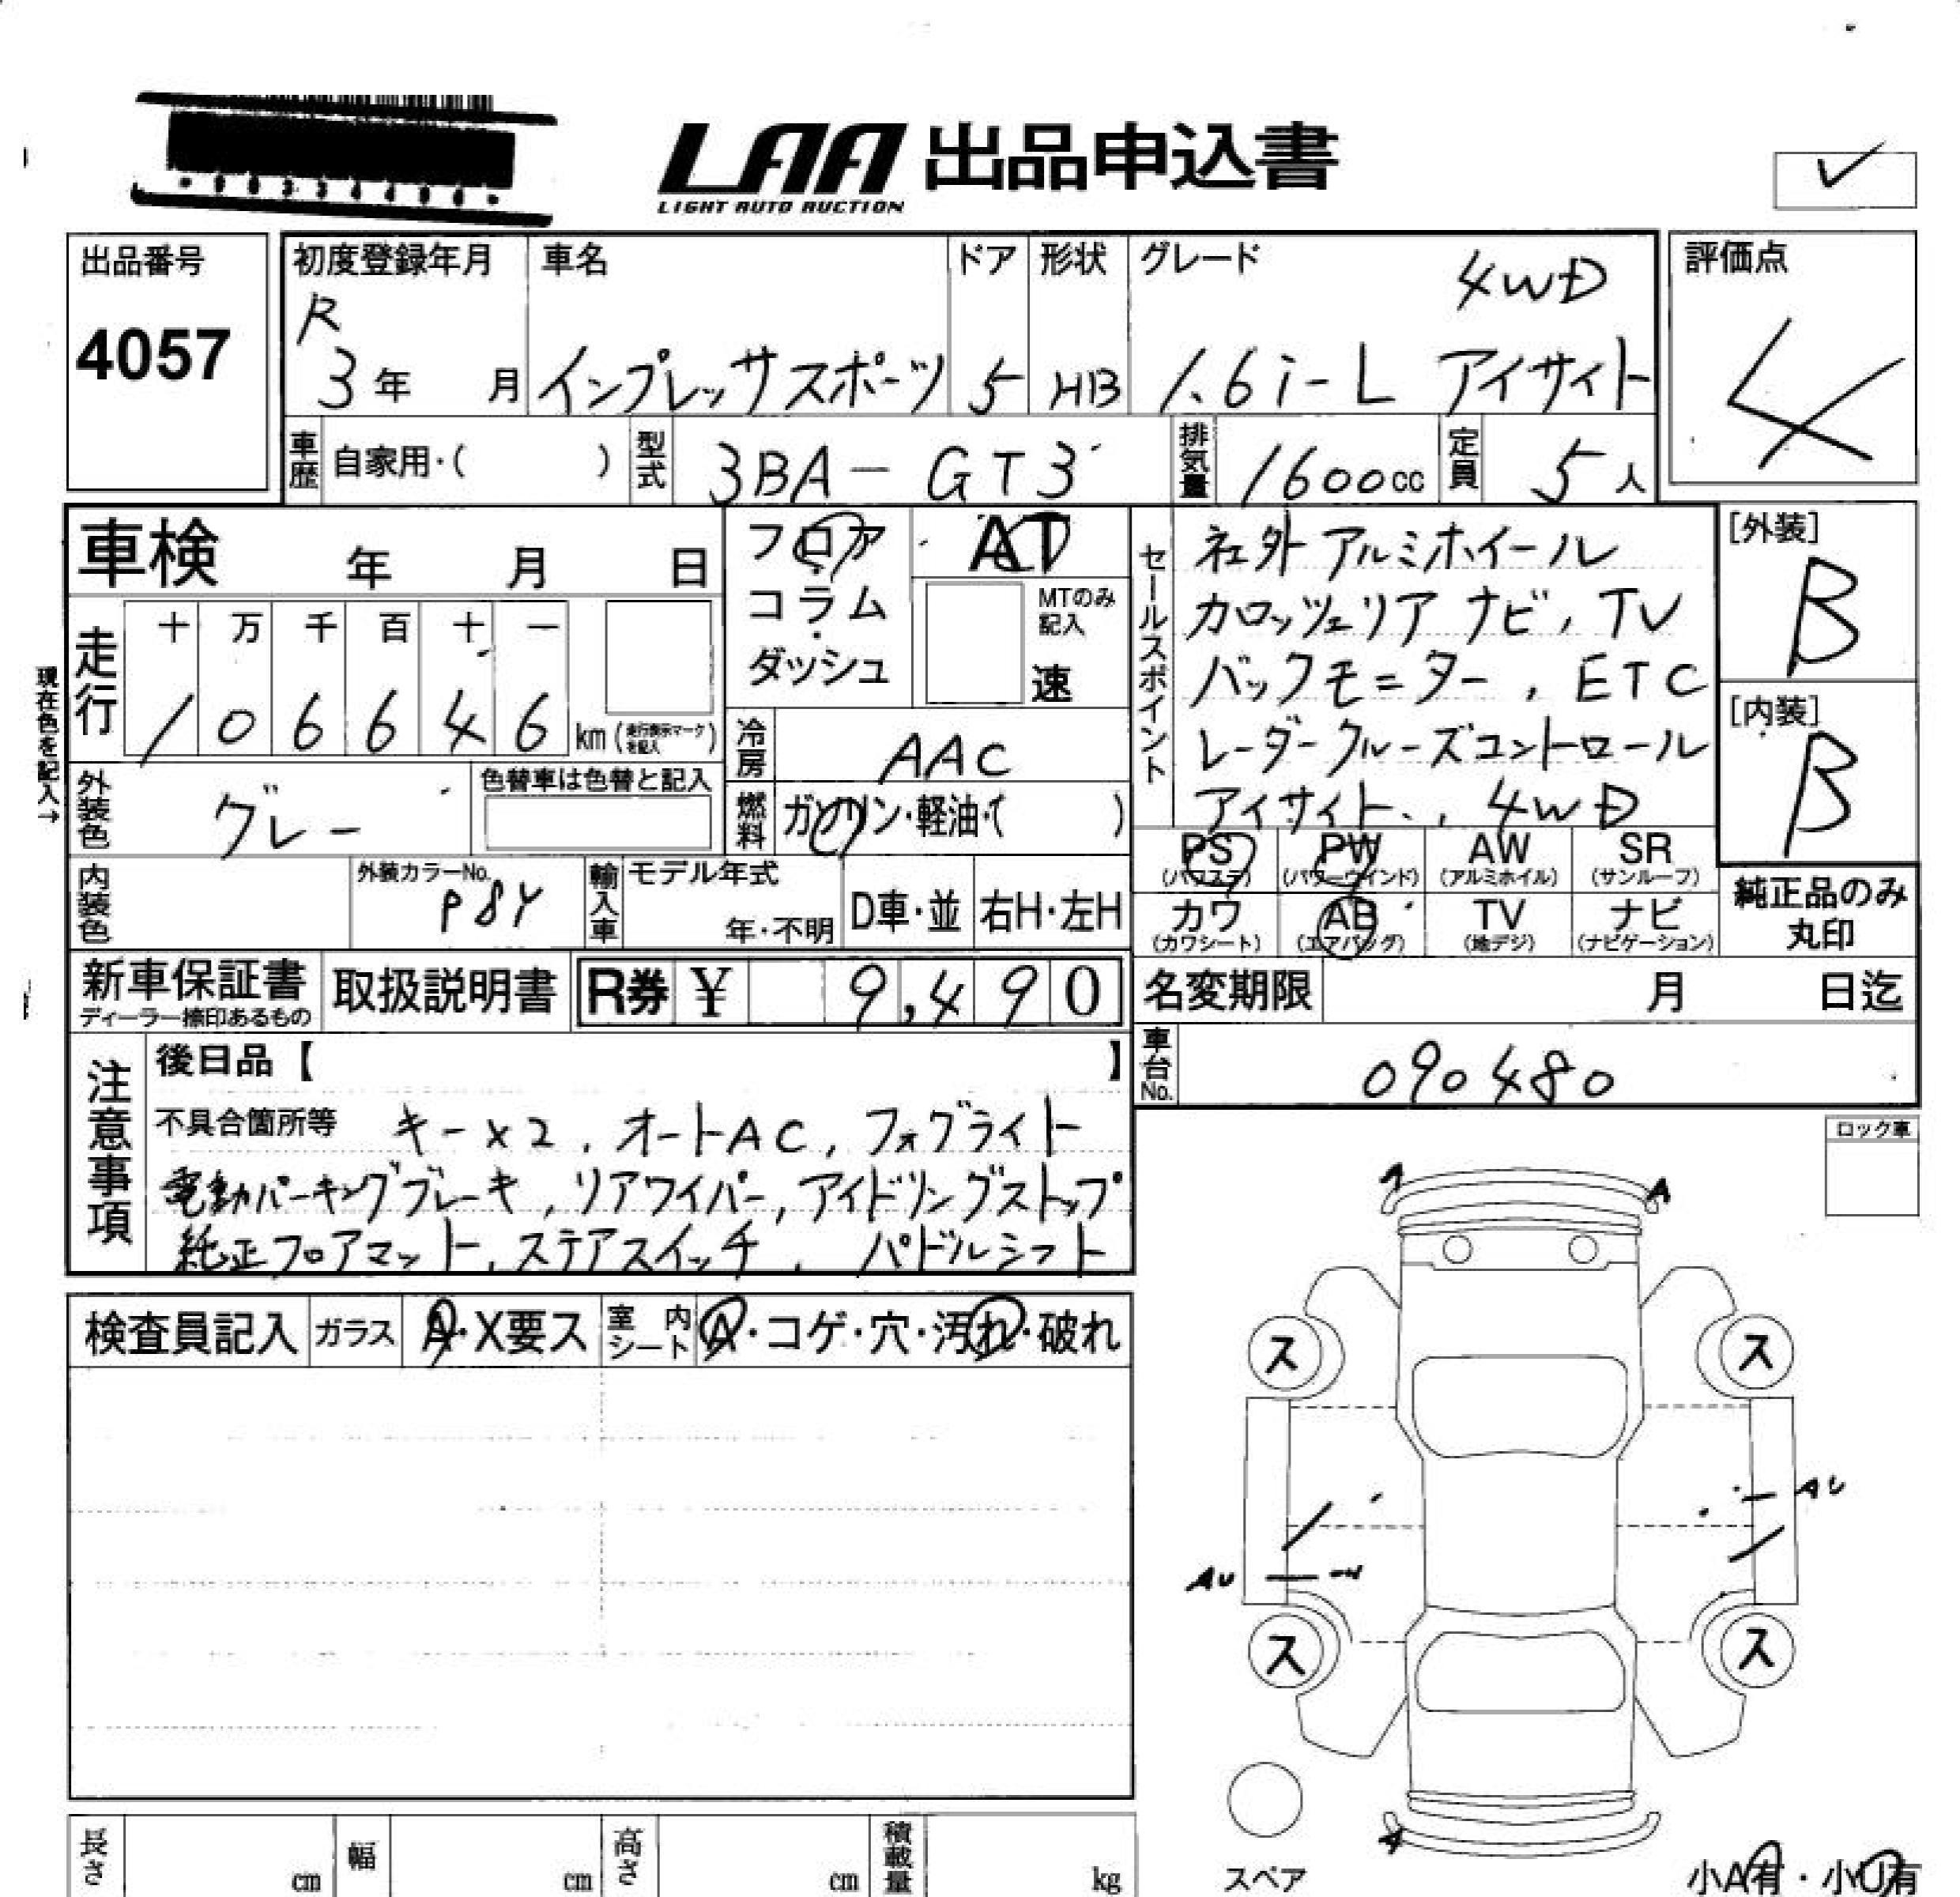 LAA 出品申込書
LIGHT AUTO AUCTION
出品番号
4057
初度登録年月
R
3年 月
車名
インプレッサスポーツ
ドア
5
形状
HB
グレード
4WD
1.6i-L アイサイト
評価点
4
車歴 自家用・( )
型式 3BA-GT3
排気量 1600cc
定員 5人
車検 年 月 日
フロア・コラム・ダッシュ
AT
MTのみ記入
速
走行
十 万 千 百 十 一
1 0 6 6 4 6 km (走行表示マークを記入)
現在色を記入→
冷房 AAC
外装色 グレー
色替車は色替と記入
燃料 ガソリン・軽油・( )
内装色
外装カラーNo.
P8Y
輸入車
モデル年式
年・不明
D車・並
右H・左H
セールスポイント
社外アルミホイール
カロッツェリアナビ, TV
バックモニター, ETC
レーダークルーズコントロール
アイサイト, 4WD
[外装]
B
[内装]
B
PS (パワステ) PW (パワーウインド) AW (アルミホイル) SR (サンルーフ)
カワ (カワシート) AB (エアバッグ) TV (地デジ) ナビ (ナビゲーション)
純正品のみ
丸印
新車保証書
ディーラー捺印あるもの
取扱説明書
R券 ¥ 9,490
名変期限 月 日迄
車台No. 090480
注意事項
後日品【 】
不具合箇所等 キー×2, オートAC, フォグライト
電動パーキングブレーキ, リアワイパー, アイドリングストップ
純正フロアマット, ステアスイッチ, パドルシフト
ロック車
検査員記入
ガラス A・X要ス
室内シート A・コゲ・穴・汚れ・破れ
A
ス ス
AU
AU
ス ス
A
スペア
小A有・小U有
長さ cm 幅 cm 高さ cm 積載量 kg